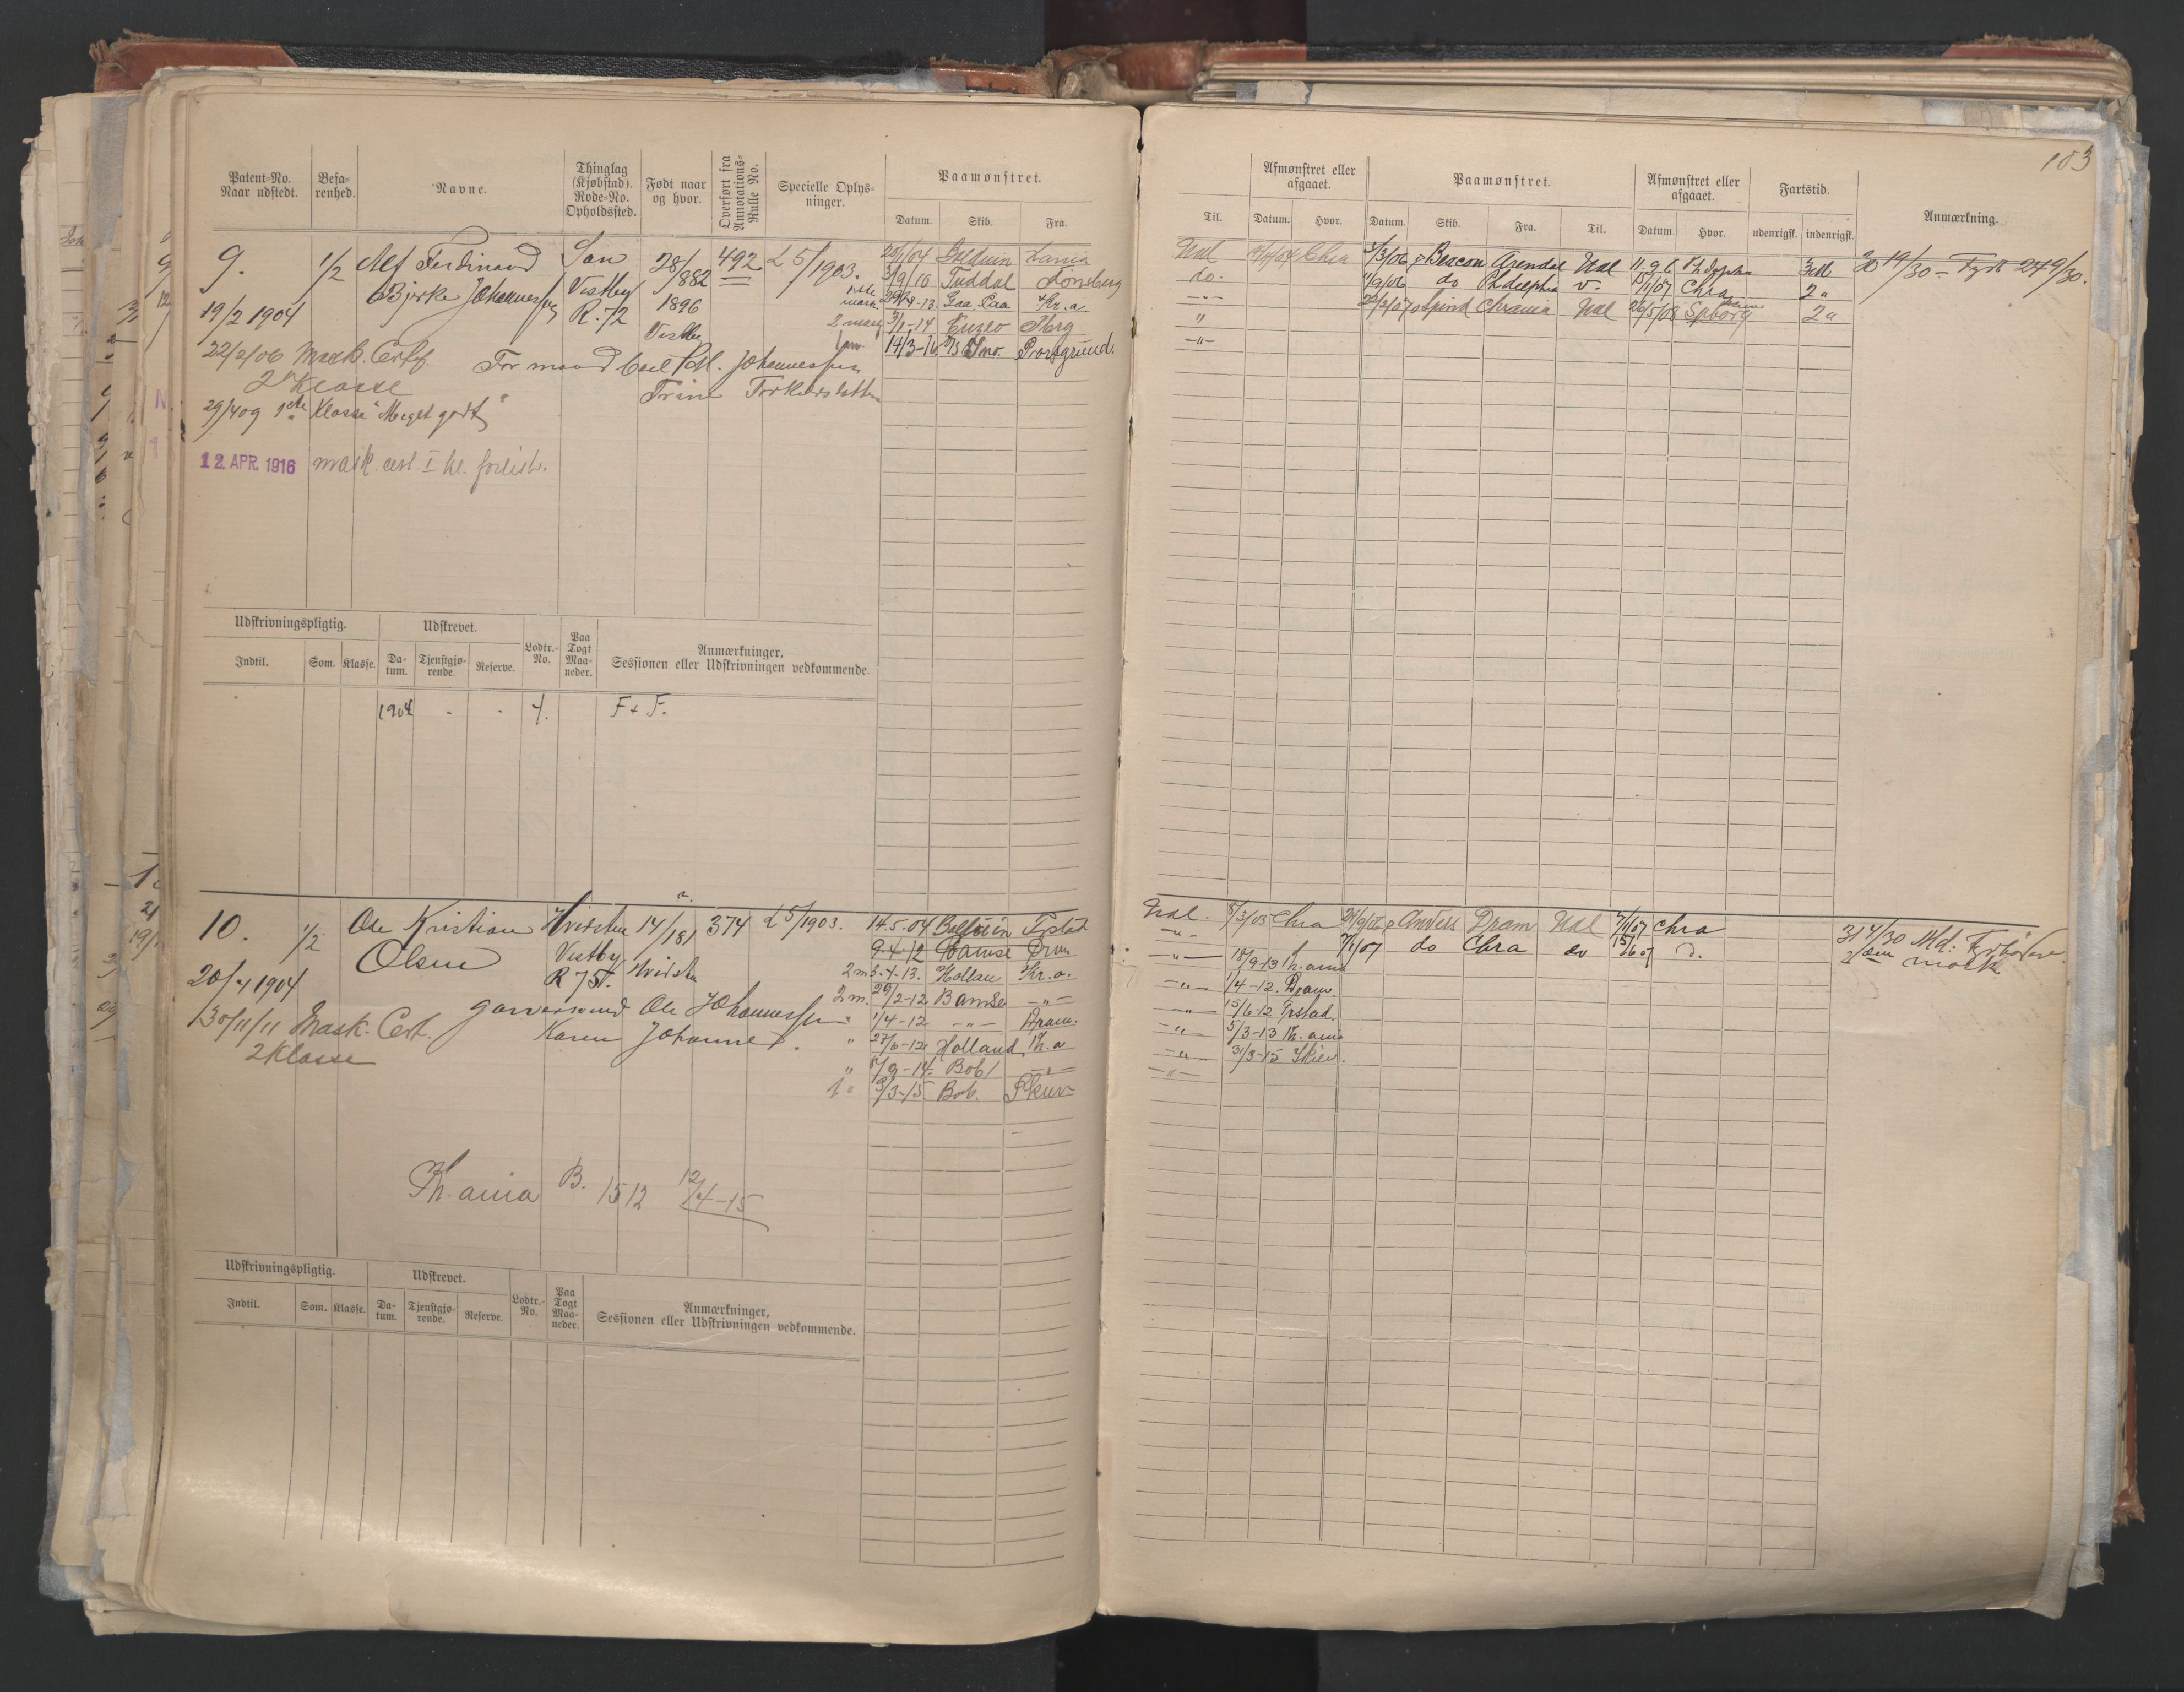 103
Patent-No. Naar udstedt.
Befarenhed.
Navne.
Thinglag (Kjøbstad). Rode-No. Opholdssted.
Født naar og hvor.
Overført fra Annotations-Rulle No.
Specielle Oplysninger.
Paamønstret.
Datum. Skib. Fra. Til.
Afmønstret eller afgaaet.
Datum. Hvor.
Paamønstret.
Datum. Skib. Fra. Til.
Afmønstret eller afgaaet.
Datum. Hvor.
Fartstid.
udenrigsk. indenrigsk.
Anmærkning.
9. 1/2 Alf Ferdinand Son 28/ 492 L 5/1903.
Bjerke Johannessen Vestby /882
19/2 1904 R. 72 1896
Vestby
22/2/06 Mask. Certf. Formand Carl Johannessen
2 Klasse Trine Torkelsdatter
29/4 09 1ste Klasse "Meget godt"
12 APR. 1916 mask. cert. I kl. forlist.
20/1/04 Kania Ual Chra
3/9/10 Tuddal Tönsberg do.
Gaa Paa Kr.a -"-
2 3/1-14 "
1 14/3-16 Porsgrund. -"-
3/3/06 Beacon Arendal Ual 11.9.6 3 M
11/9/06 do Phdelphia v. 15/1/07 Chra 2 "
Spind Chrania Ual 26/5/08 2 "
30 19/30 - 249/30.
Udskrivningspligtig.
Udskrevet.
Lodtr.-No.
Paa Togt Maaneder.
Anmærkninger, Sessionen eller Udskrivningen vedkommende.
Indtil. Som. Klasse. Datum. Tjenstgjørende. Reserve.
1904 - - 4. F + F.
10. 1/2 Ole Kristian Hvidsten 14/181 374 L 5/1903.
Olsen Vestby
20/4 1904 R 75 Hvidsten
30/11/11 Mask. Cert. Ole Johannessen
2 Klasse Karen Johanne
14-5-04 Ual. 8/3/05 Chra
9-4-12 Bamse Dram -"-
2 m 3-4-13. Kr.a. -"- 18/9-13 Kr.ania
2 m. 29/2-12 Bamse -"- -"- 1/4-12. Dram.
" 1/4-12 -"- Dram. -"- 15/6-12
" 27/6-12 Holland Kr.a -"- 5/3-13 Kr.ania
" 8/9-14. Bob 1 -"- -"- 31/3-15 Skien.
1 " 3/3-15. Bob. Skien -"-
24/9/06 Anders Dram Ual 7/1/07 Chra
7/1/07 do Chra do 15/6 07 d.
31 4/30 Md. Fyrbøder
Kr.ania B. 1512 12/4-15
Udskrivningspligtig.
Udskrevet.
Lodtr.-No.
Paa Togt Maaneder.
Anmærkninger, Sessionen eller Udskrivningen vedkommende.
Indtil. Som. Klasse. Datum. Tjenstgjørende. Reserve.